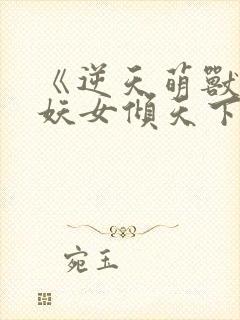 《逆天萌獸
妖女傾天下
宛玉